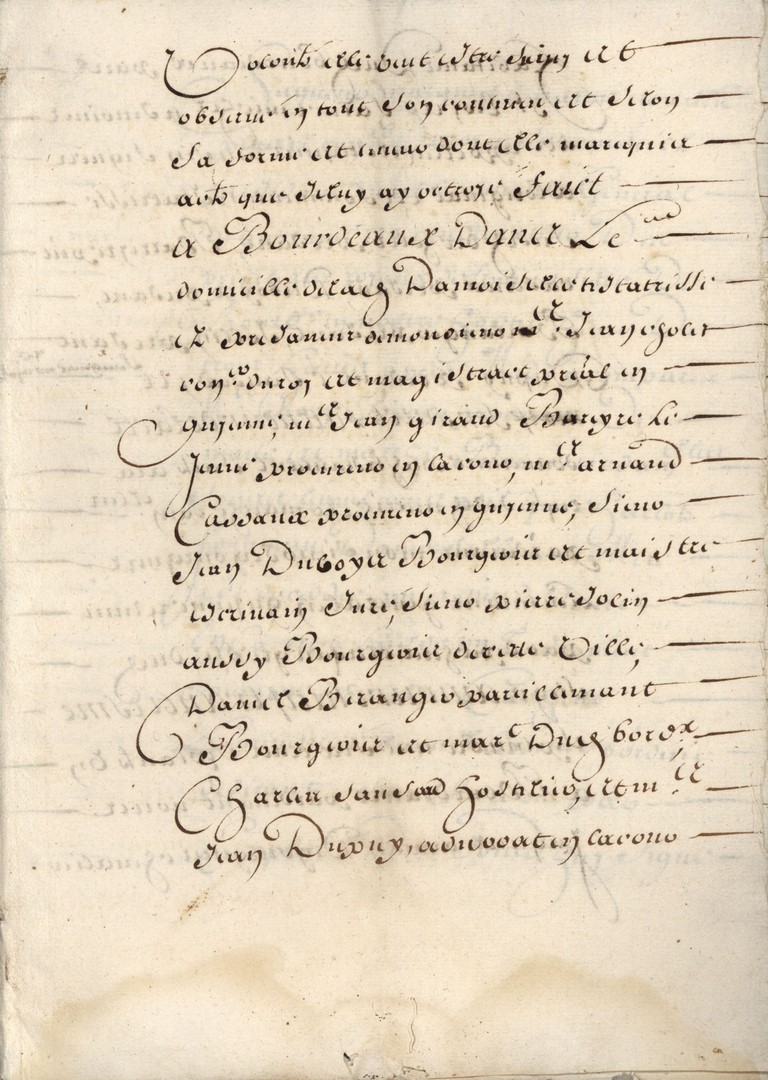 Volonté elle veut estre suivy et
observé en tout son contenu et selon
sa forme et teneur dont elle m'a requis
acte que je luy ay octroyé Faict
a Bourdeaux Dans Le
domicille de lad Damoiselle testatrisse
ez presances de monsieur me Jean
conr du roy et magistract presal en
guienne, mr Jean giraud, Bareyre Le
Jeune procureur en la cour, mr arnaud
Cassaux procureur en guienne, sieur
Jean Duboyer Bourgeois et maistre
escrivain Juré, sieur pierre Jolin
aussy Bourgeois de cette Ville,
Daniel Beranger pareillemant
Bourgeois et marc Dud bordx,
Charles hostelier, et mr
Jean Dupuy, advocat en la cour